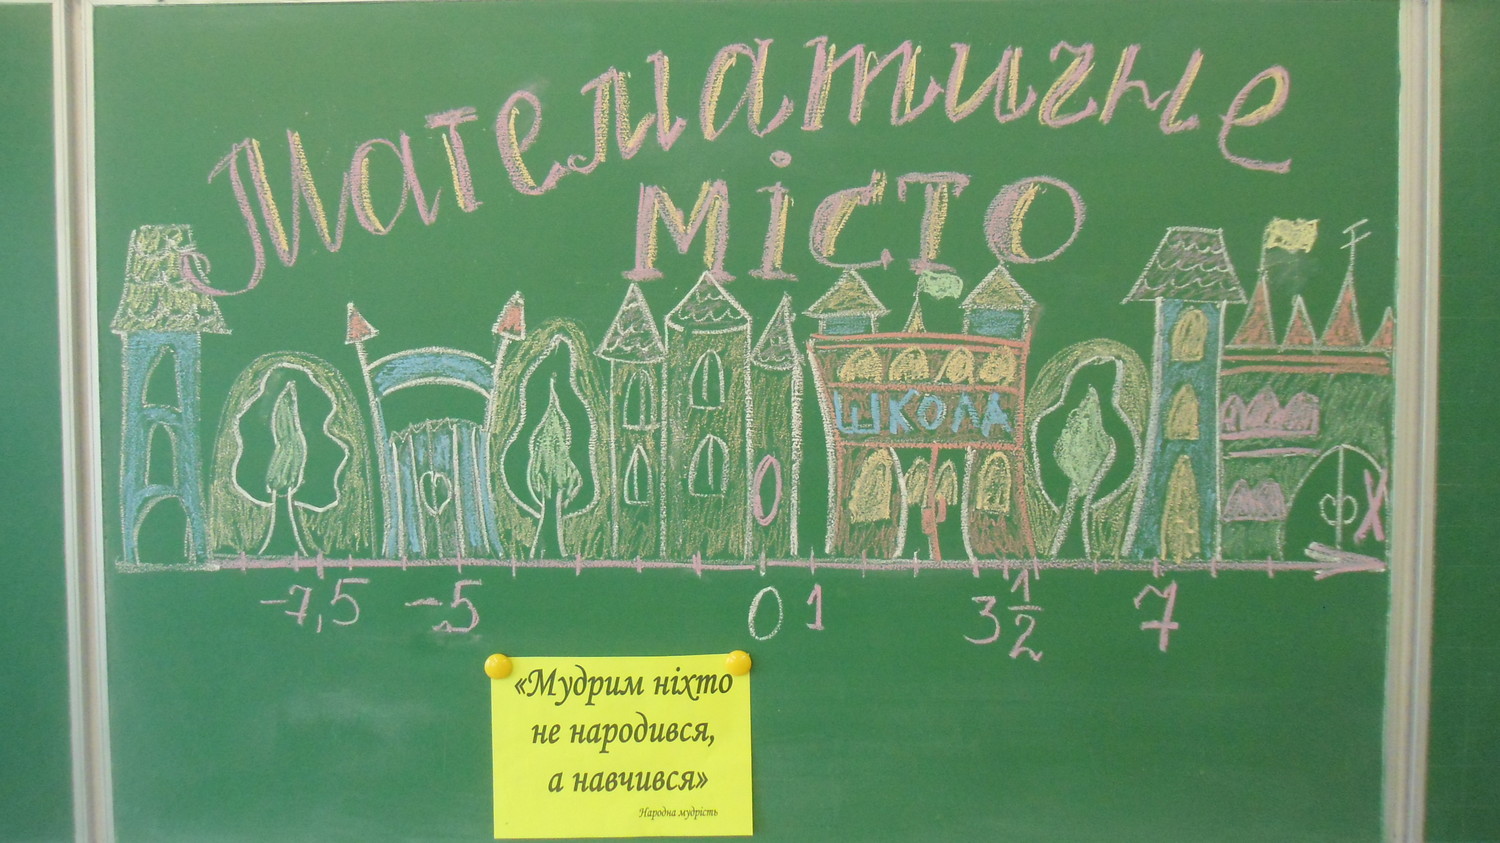 Математичне
місто
ШКОЛА
0
X
-7,5 -5 0 1 3 1/2 7
«Мудрим ніхто
не народився,
а навчився»
Народна мудрість